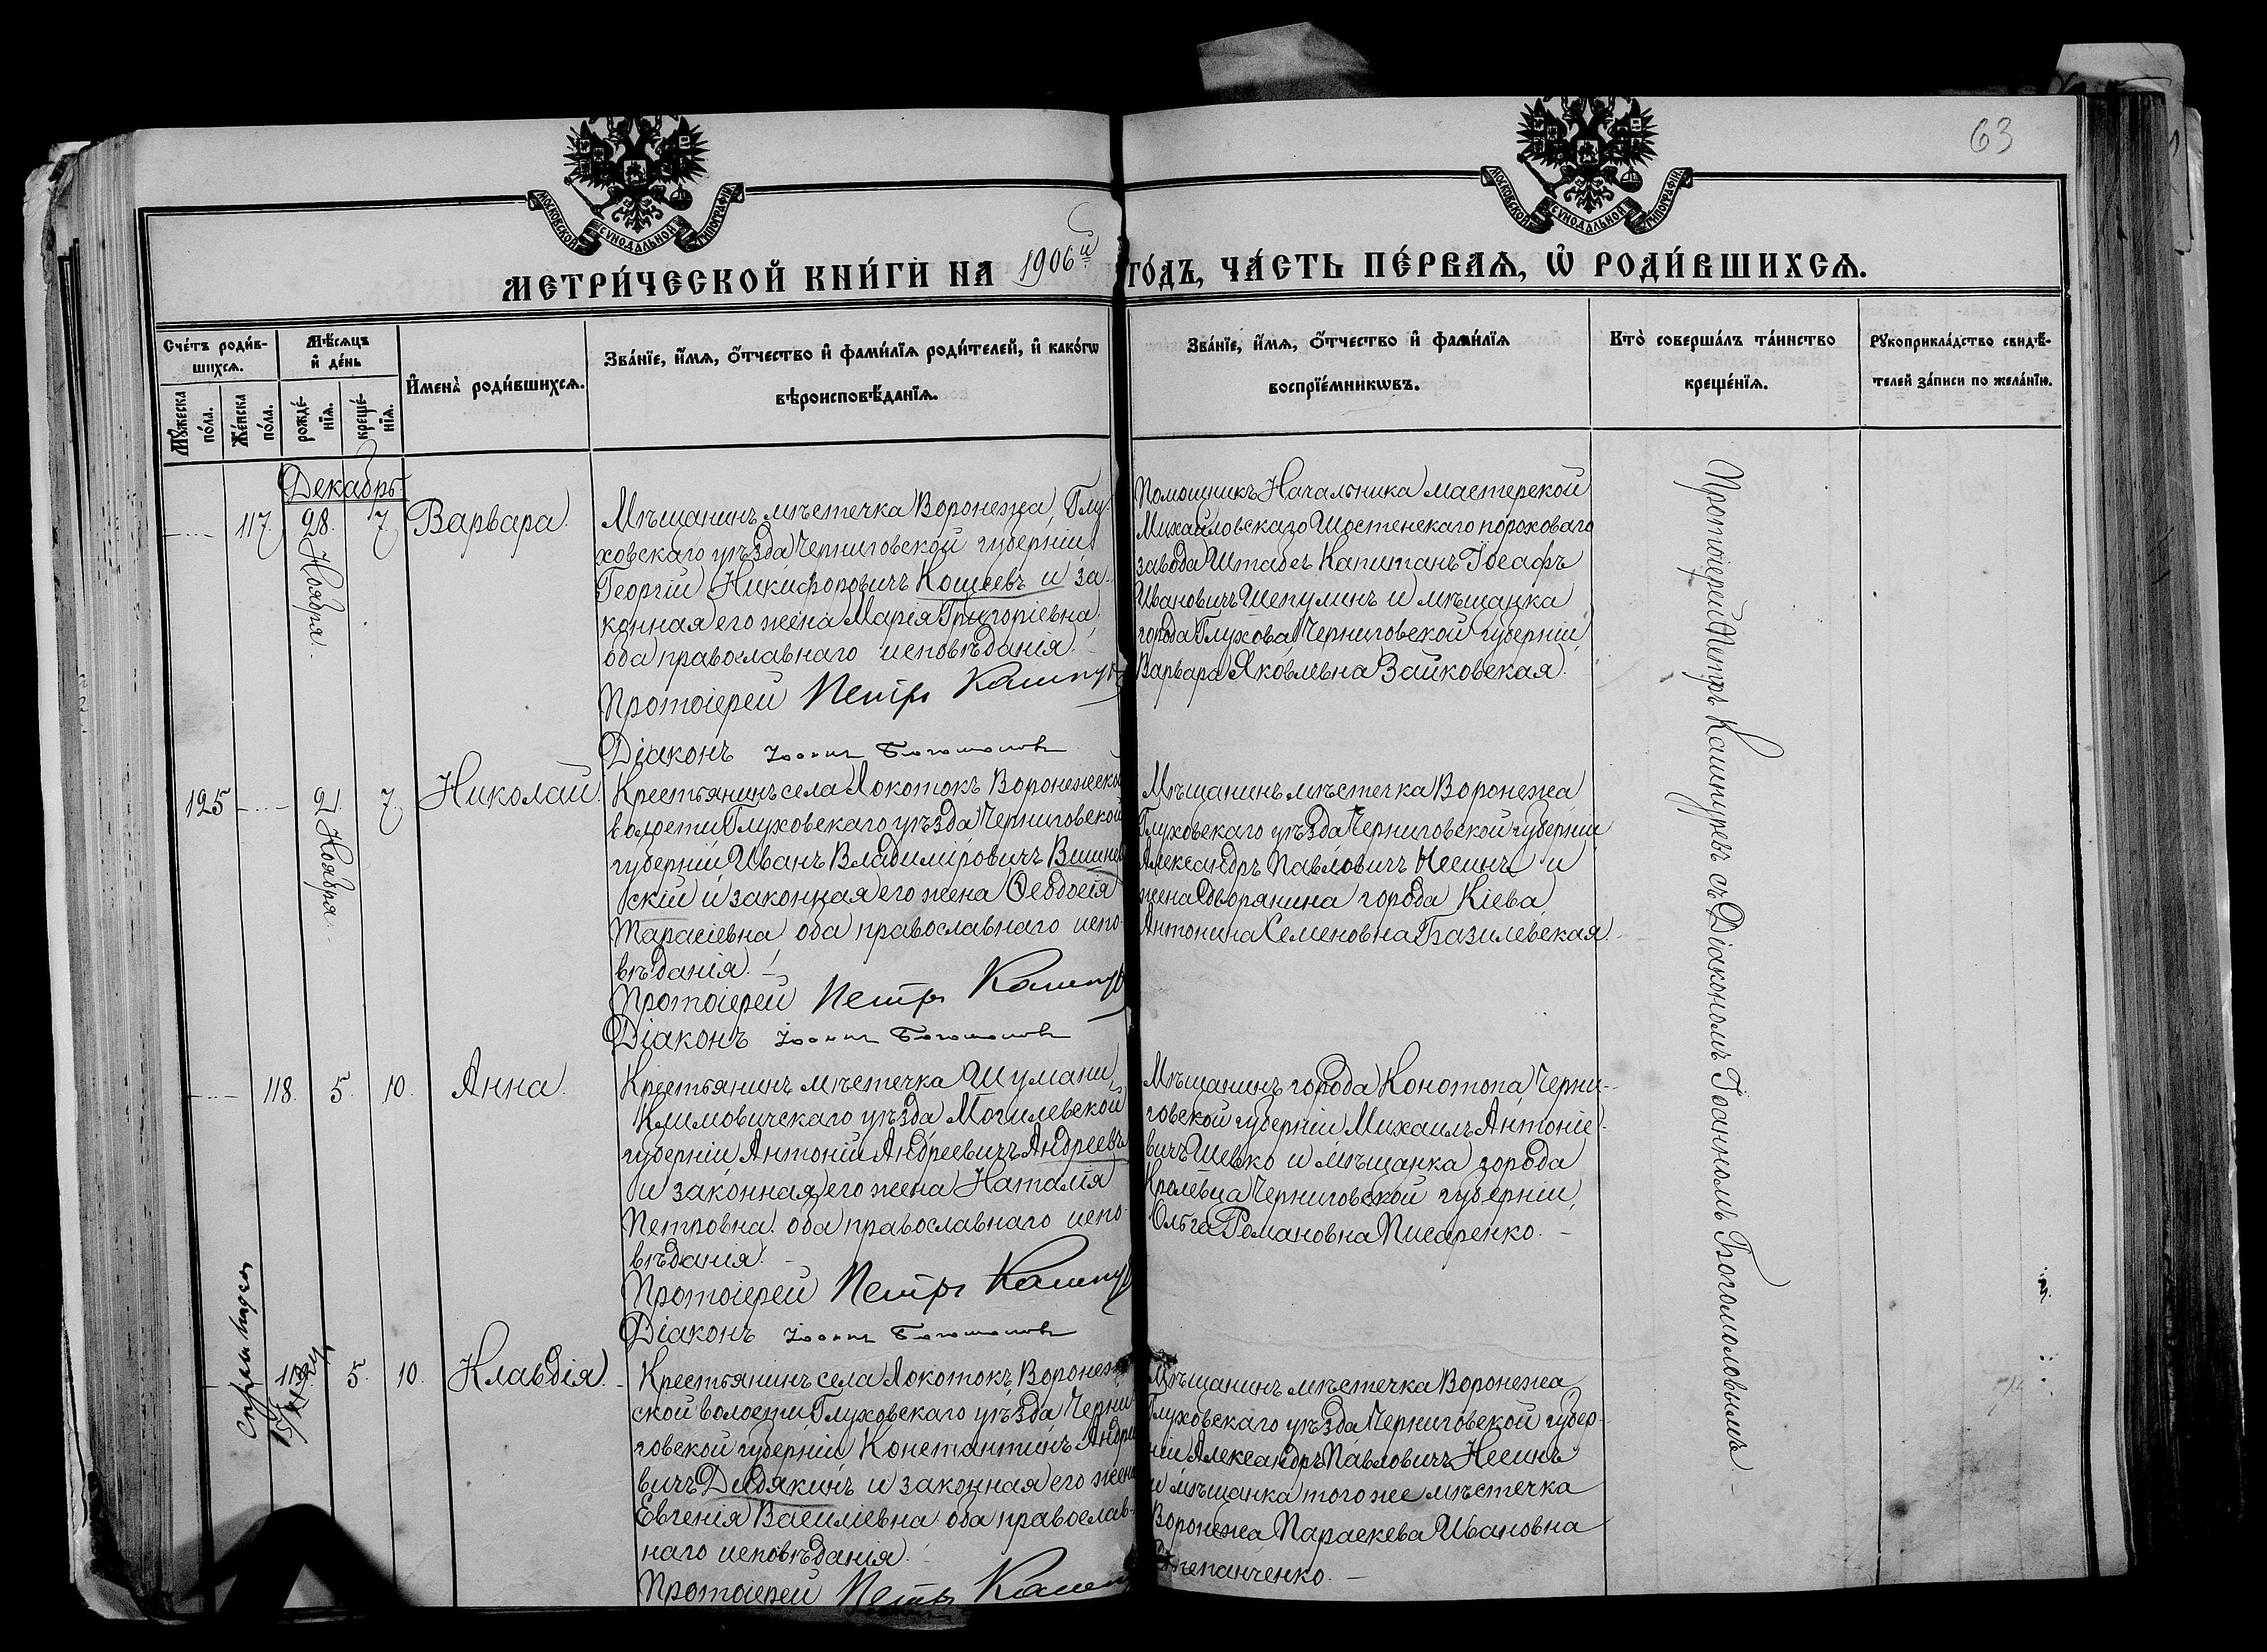 63
МОСКОВСКОЙ СѴНОДАЛЬНОЙ ТИПОГРАФІИ
МОСКОВСКОЙ СѴНОДАЛЬНОЙ ТИПОГРАФІИ
МЕТРИ́ЧЕСКОЙ КНИ́ГИ НА 1906й ГО́ДЪ, ЧА́СТЬ ПЕ́РВАѦ, Ѡ҆ РОДИ́ВШИХСѦ.
Сче́тъ роди́в-
шихсѧ.
Мѣ́сѧцъ
и҆ де́нь
Мꙋ́жеска
по́ла.
Же́нска
по́ла.
рожде́-
нїѧ.
креще́-
нїѧ.
И҆мена̀ роди́вшихсѧ.
Зва́нїе, и҆́мѧ, ѻ҆́тчество и҆ фами́лїѧ роди́телей, и҆ како́гѡ
вѣроисповѣ́данїѧ.
Зва́нїе, и҆́мѧ, ѻ҆́тчество и҆ фами́лїѧ
воспрїе́мникѡвъ.
Кто̀ соверша́лъ та́инство
креще́нїѧ.
Рꙋкоприкла́дство свидѣ́-
телей за́писи по жела́нїю.
Декабрь
117. 28. Ноября. 7. Варвара.
Мѣщанинъ мѣстечка Воронежа, Глу-
ховскаго уѣзда Черниговской губерніи
Георгій Никифоровичъ Кощеевъ и за-
конная его жена Марія Григоріевна,
оба православнаго исповѣданія.
Протоіерей Петръ Кашпур
Діаконъ Іоаннъ Богомоловъ
Помощникъ Начальника мастерской
Михайловскаго Шостенскаго пороховаго
завода Штабсъ Капитанъ Іоасафъ
Ивановичъ Шепулинъ и мѣщанка
города Глухова Черниговской губерніи
Варвара Яковлевна Зайковская.
125 21. Ноября. 7. Николай.
Крестьянинъ села Локотокъ Воронежской
волости Глуховскаго уѣзда Черниговской
губерніи Иванъ Владиміровичъ Вишнев
скій и законная его жена Ѳеодосія
Тарасіевна оба православнаго испо-
вѣданія. –
Протоіерей Петръ Кашпур
Діаконъ Іоаннъ Богомоловъ
Мѣщанинъ мѣстечка Воронежа
Глуховскаго уѣзда Черниговской губерніи
Александръ Павловичъ Несинъ и
жена дворянина города Кіева
Антонина Семеновна Базилевская.
118. 5. 10. Анна.
Крестьянинъ мѣстечка Шумани,
Климовичскаго уѣзда Могилевской
губерніи Антоній Андреевичъ Андреевъ
и законная его жена Наталія
Петровна оба православнаго испо-
вѣданія. –
Протоіерей Петръ Кашпур
Діаконъ Іоаннъ Богомоловъ
Мѣщанинъ города Конотопа Черни-
говской губерніи Михаилъ Антоніе-
вичъ Шевко и мѣщанка города
Кролевца Черниговской губерніи,
Ольга Романовна Писаренко. –
119. 5. 10. Клавдія.
Крестьянинъ села Локотокъ Воронеж
ской волости Глуховскаго уѣзда Черни-
говской губерніи Константинъ Андрее
вичъ Дидякинъ и законная его жена
Евгенія Василіевна оба православ-
наго исповѣданія.
Протоіерей Петръ Кашп
Мѣщанинъ мѣстечка Воронежа
Глуховскаго уѣзда Черниговской губер-
ніи Александръ Павловичъ Несинъ
и мѣщанка того же мѣстечка
Воронежа Параскева Ивановна
Степанченко. –
Протоіерей Петръ Кашпуревъ съ Діакономъ Іоанномъ Богомоловымъ –